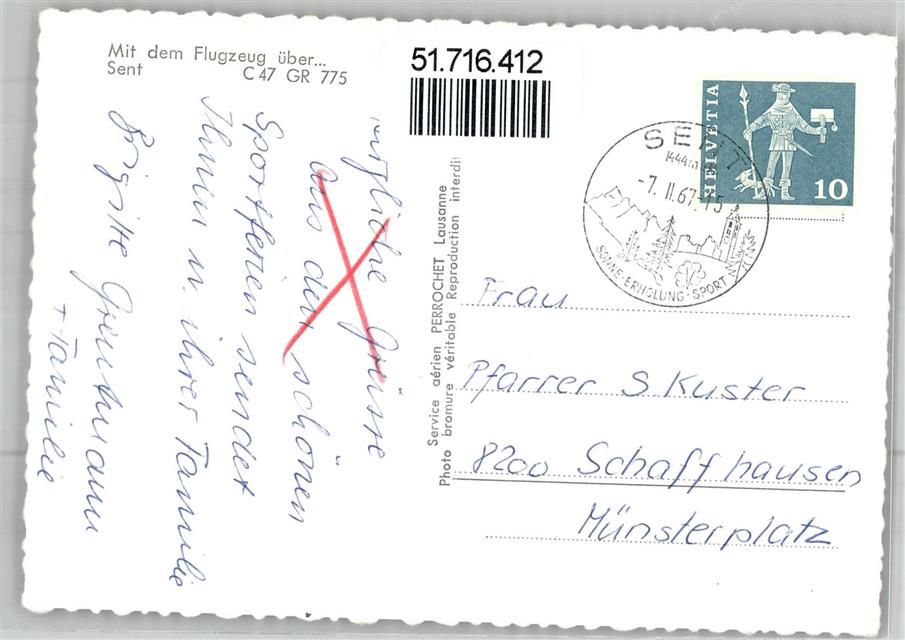 Mit dem Flugzeug über...
Sent C 47 GR 775
51.716.412
HELVETIA
10
SENT
1444 m
-7. II. 67. 15
SONNE · ERHOLUNG · SPORT
Service aérien PERROCHET Lausanne
Photo bromure véritable Reproduction interdit
Grüsse
aus den schönen
Sportferien sendet
Ihnen u. ihrer Familie
Brigitte
+ Familie
Frau
Pfarrer S Kuster
8200 Schaffhausen
Münsterplatz